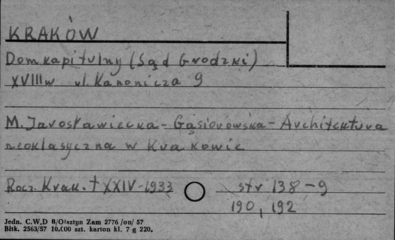 KRAKÓW
Dom kapitulny (Sąd Grodzki)
XVIII w ul. Kanonicza 9
M. Jarosławiecka - Gąsiorowska - Architektura
neoklasyczna w Krakowie
Rocz. Krak. t XXIV - 1933 str 138 - 9
190, 192
Jedn. C.W.D 8/Olsztyn Zam 2776 /on/ 57
Bltk. 2563/57 10.000 szt. karton kl. 7 g 220.